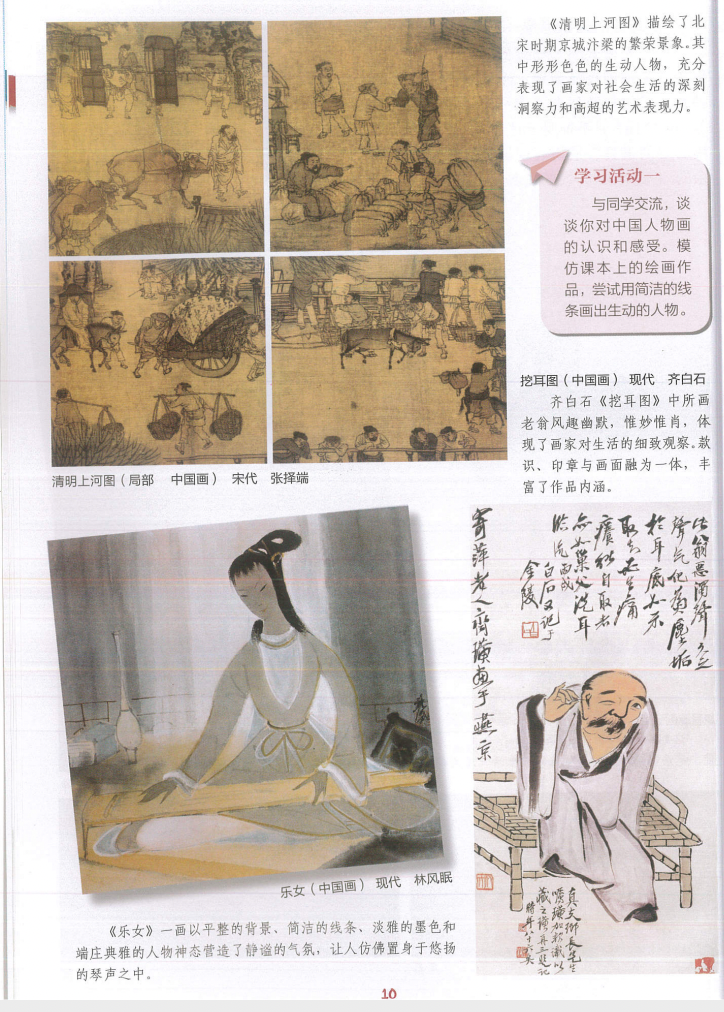 《清明上河图》描绘了北
宋时期京城汴梁的繁荣景象。其
中形形色色的生动人物，充分
表现了画家对社会生活的深刻
洞察力和高超的艺术表现力。
学习活动一
与同学交流，谈
谈你对中国人物画
的认识和感受。模
仿课本上的绘画作
品，尝试用简洁的线
条画出生动的人物。
清明上河图（局部 中国画） 宋代 张择端
挖耳图（中国画） 现代 齐白石
齐白石《挖耳图》中所画
老翁风趣幽默，惟妙惟肖，体
现了画家对生活的细致观察。款
识、印章与画面融为一体，丰
富了作品内涵。
此翁恶浊声
声气化为尘垢
于耳底如不
取去必生痛
痒能自取者
亦如巢父洗耳
临流而哉
白石又记于
金陵
寄萍老人齐璜画于燕京
乐女（中国画） 现代 林风眠
《乐女》一画以平整的背景、简洁的线条、淡雅的墨色和
端庄典雅的人物神态营造了静谧的气氛，让人仿佛置身于悠扬
的琴声之中。
10